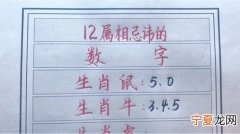 12属相忌讳的
数 字
生肖鼠:5.0
生肖牛:3.4.5
宁夏龙网